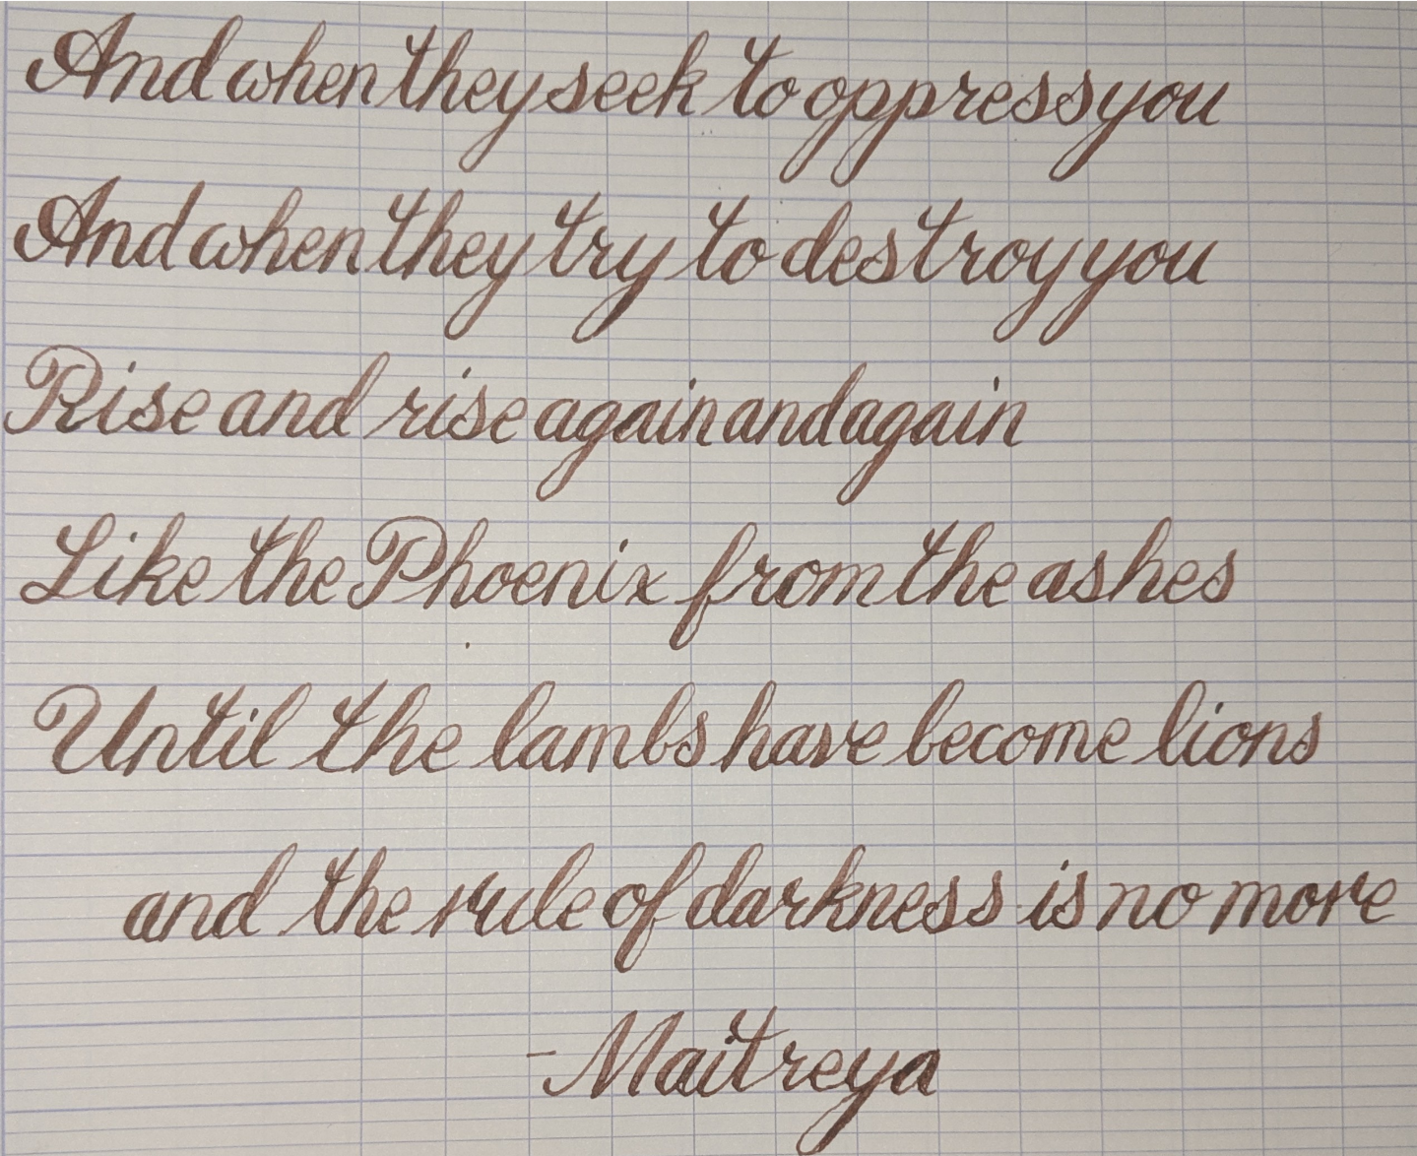 And when they seek to oppress you
And when they try to destroy you
Rise and rise again and again
Like the Phoenix from the ashes
Until the lambs have become lions
and the rule of darkness is no more
- Maitreya